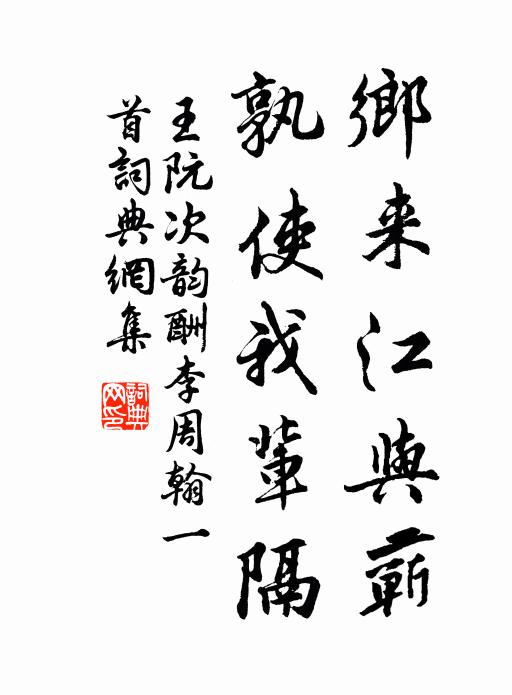 鄉来江與蘄
孰使我輩隔
王阮次韵酬李周翰一
首詞典網集
詞典
网印